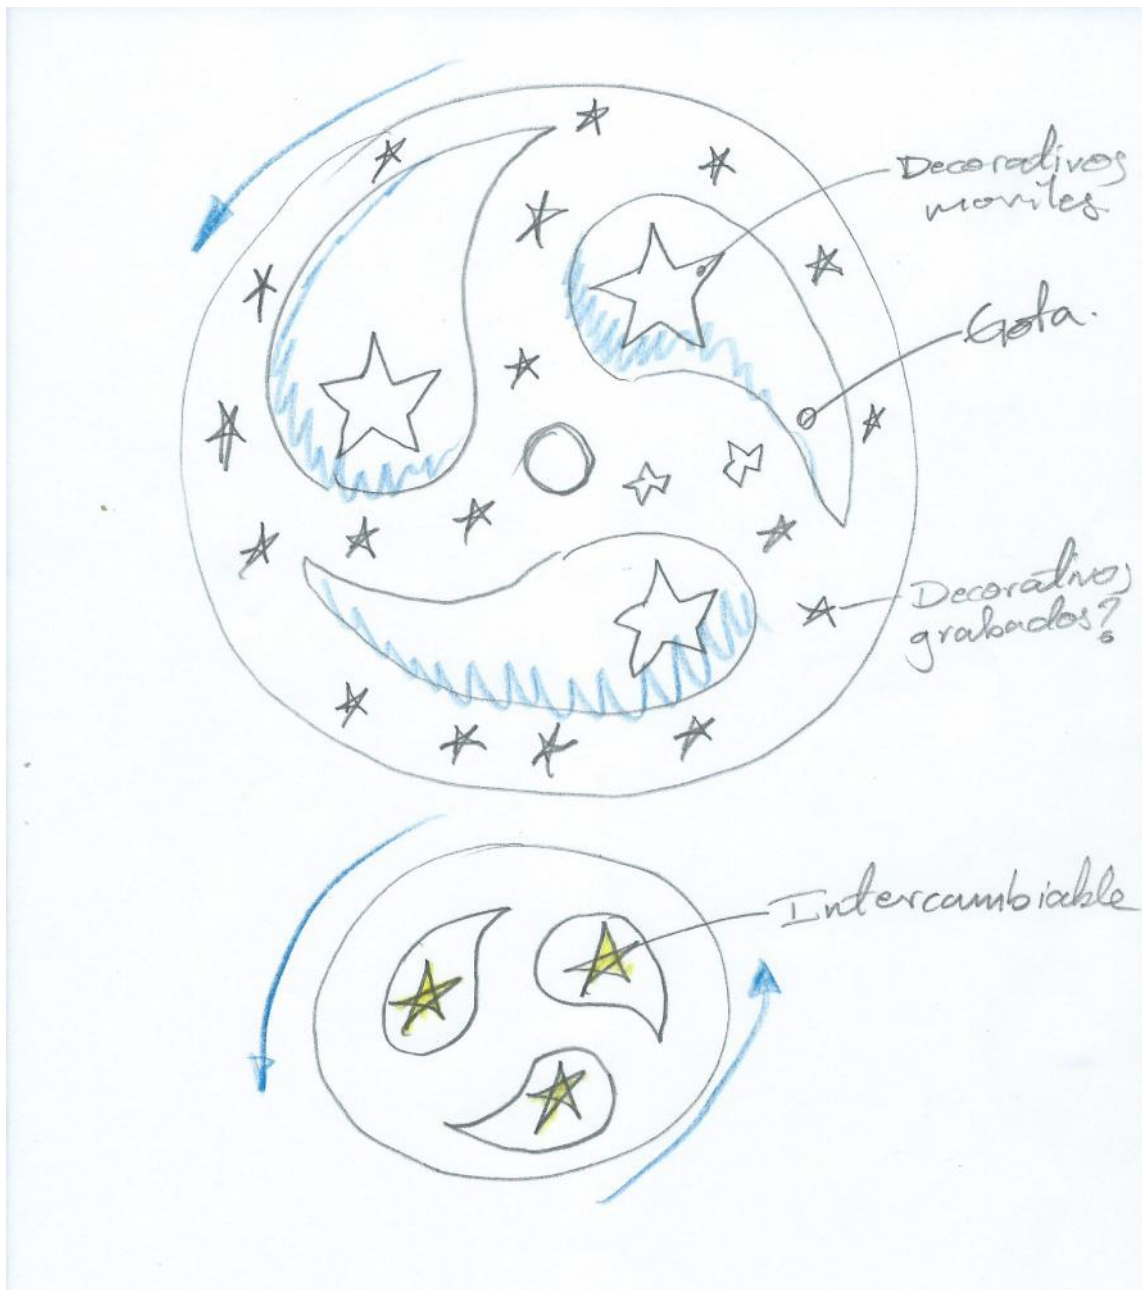 Decorativos
moviles
Gota.
Decorativos
grabados?
Intercambiable